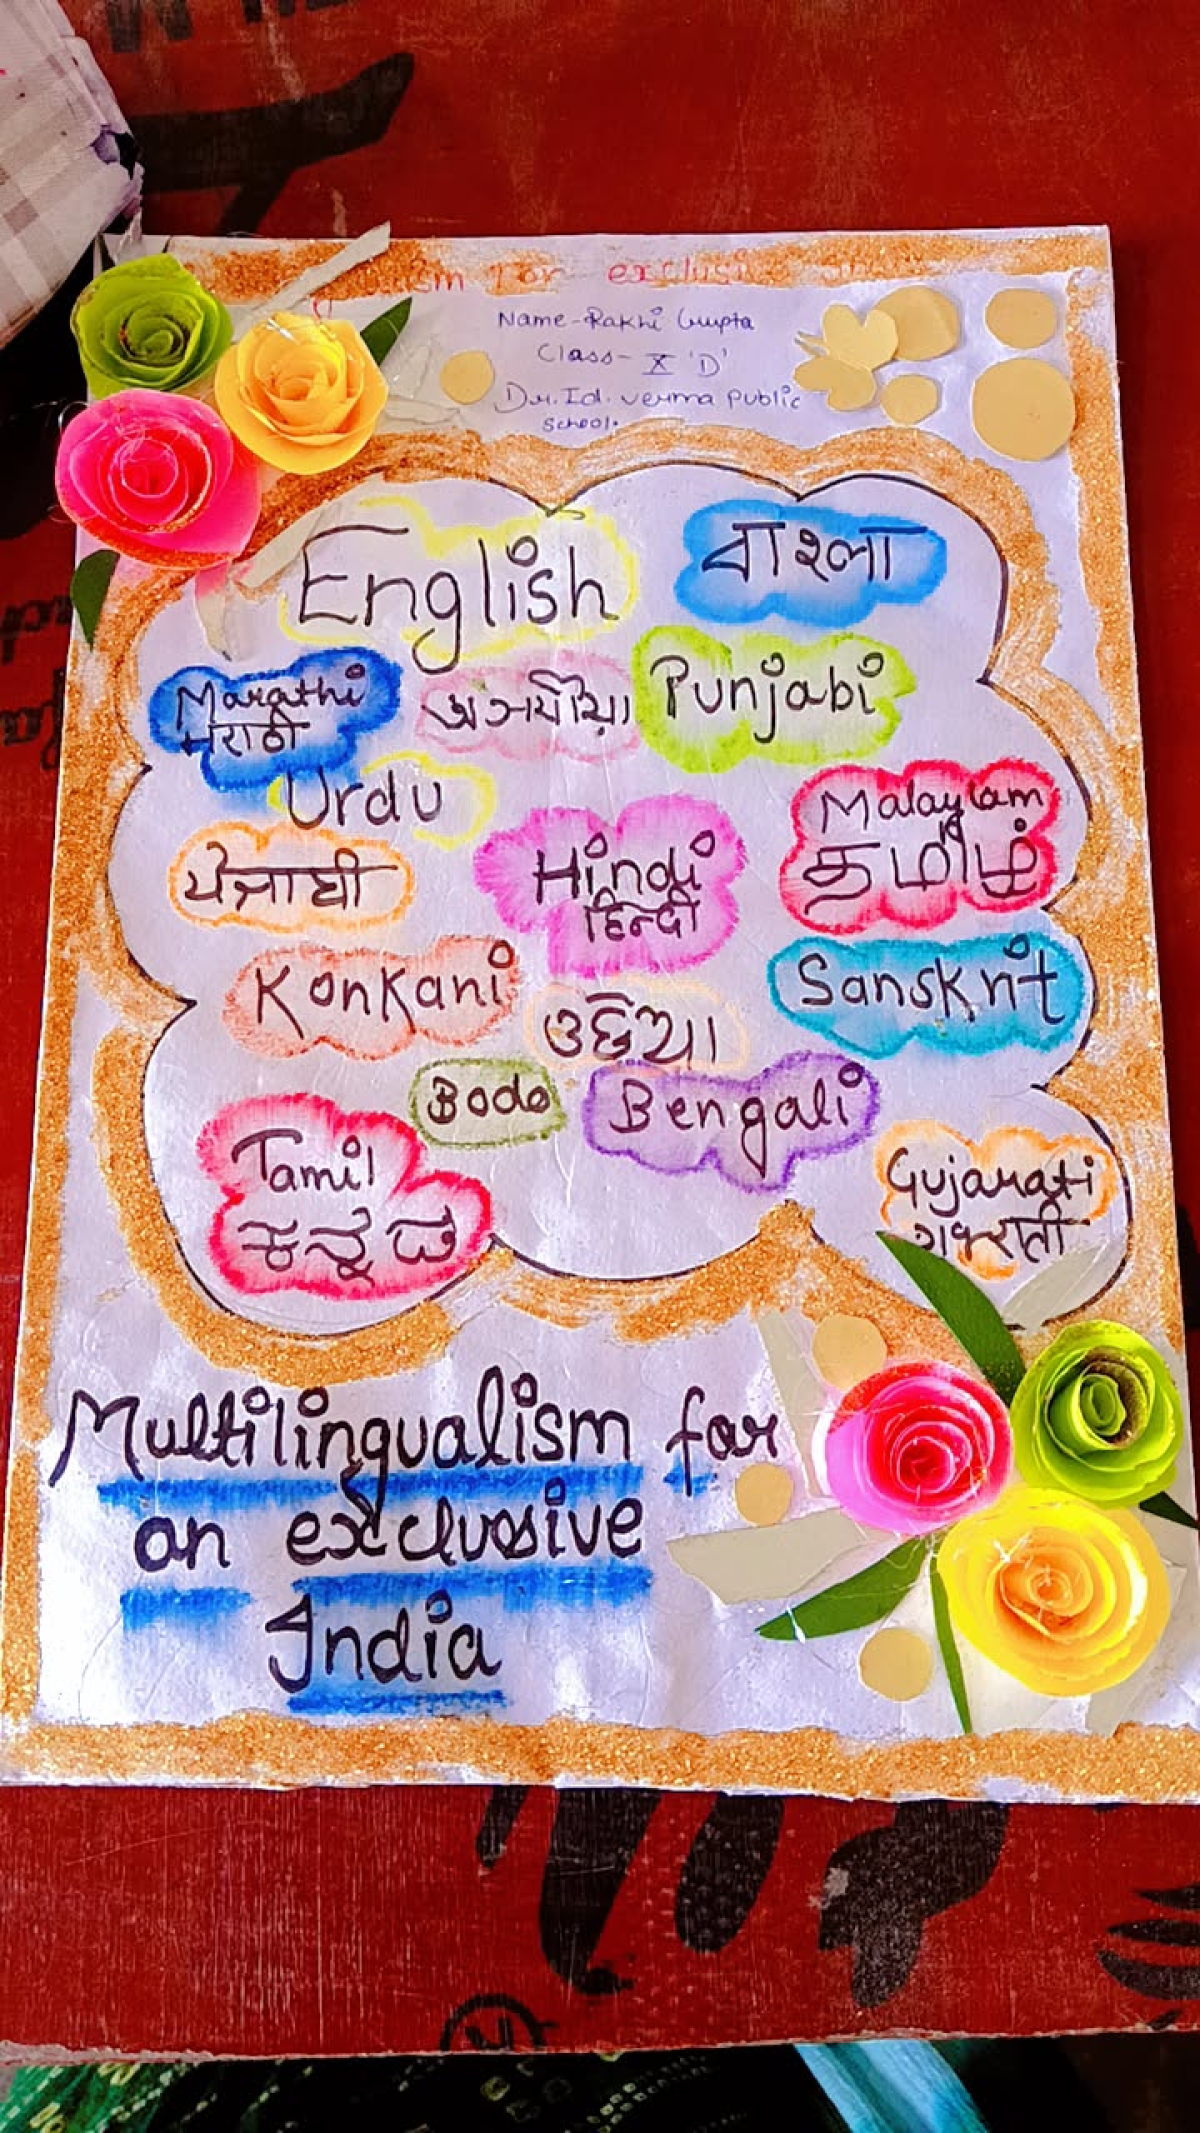 ism for exclusive
Name-Rakhi Gupta
Class- X 'D'
Dr. I.d. verma Public
School.
English
বাংলা
Marathi
मराठी
অসমীয়া
Punjabi
Urdu
Malaylam
தமிழ்
Hindi
हिन्दी
Konkani
Sanskrit
ଓଡ଼ିଆ
Bodo
Bengali
Tamil
ಕನ್ನಡ
Gujarati
Multilingualism for
an exclusive
India